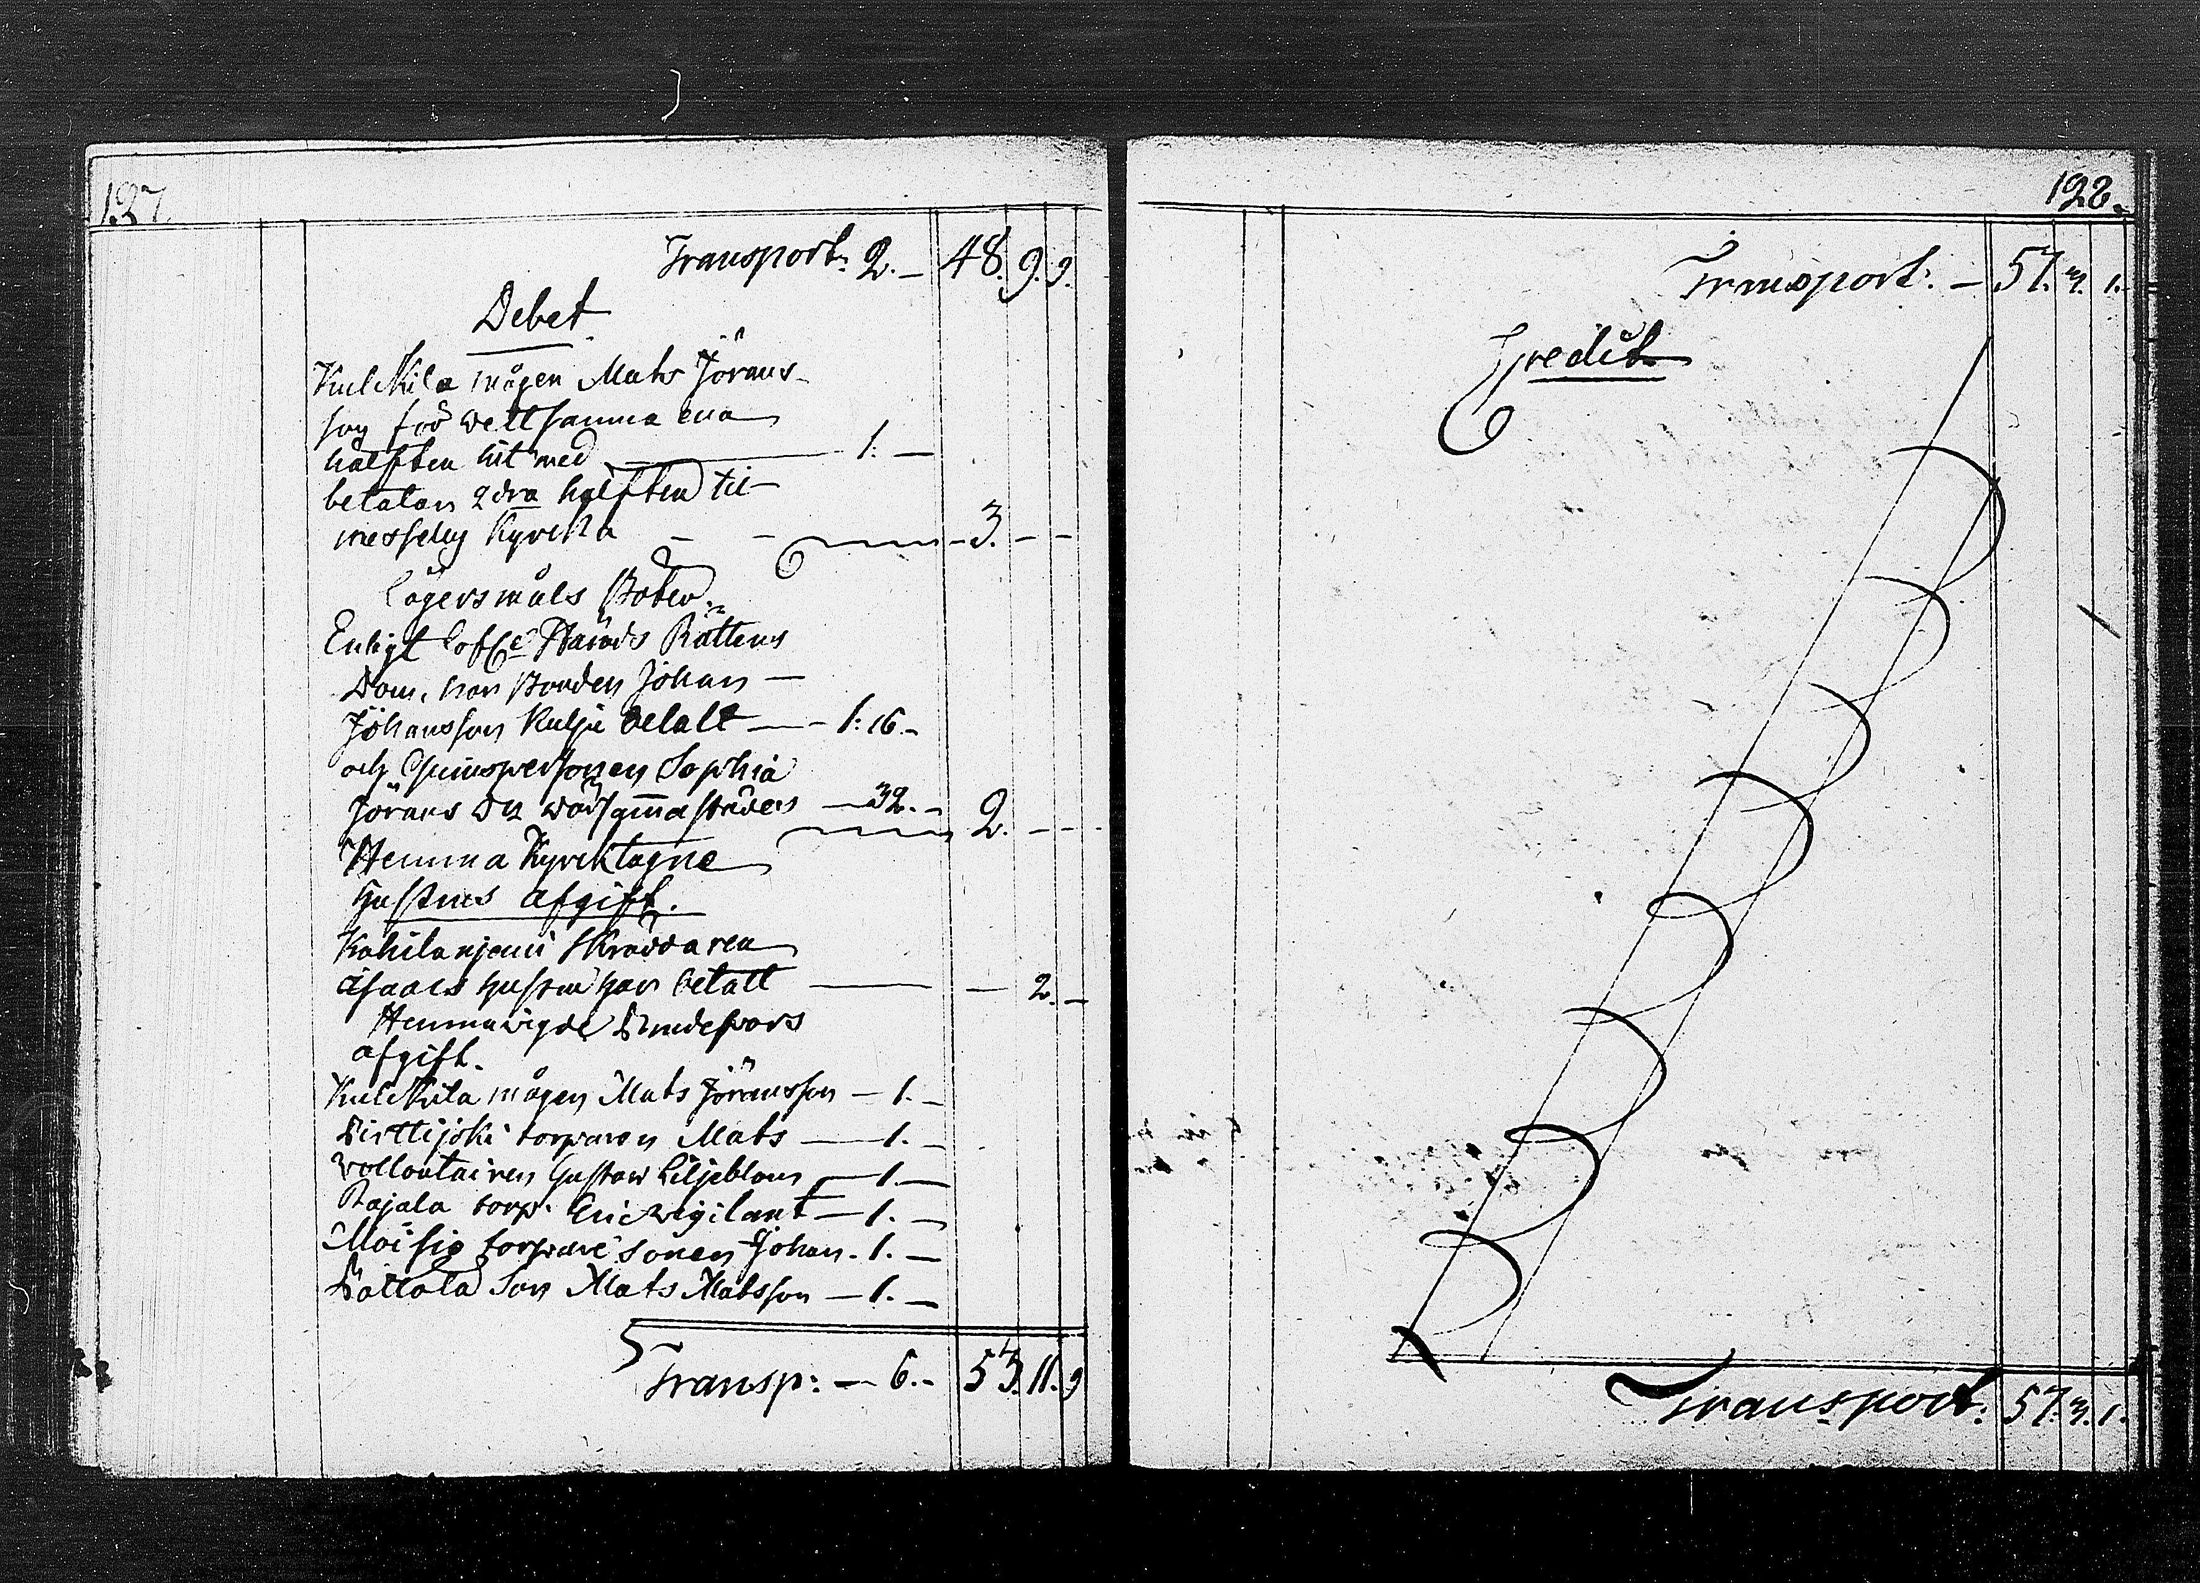 127.
Transport: 2. — 48. 9. 9.
Debet
Kulckila mågen Mats Jörans-
son för samma ena
hälften hit med — 1. —
betalar 2dra hälften til
Kyrcka — — 3. — —
Lägersmåls Böter.
Enligt Härads Rättens
Dom, har Bonden Johan —
Johansson betalt — 1: 16. —
och Qvinspersonen Sophia
Jörans — 32. — 2. — —
Hemma Kyrcktagne
Hustrus afgift.
Skräddaren
Isaacs hustru har betalt — — 2. —
Hemmavigde Brudepars
afgift.
Kulckila mågen Mats Jöransson — 1. —
torparen Mats — 1. —
Vollontairen Gustaw Liljeblom — 1. —
Rajala torp. Eric Vigilant — 1. —
Moisio torpare sonen Johan. 1. —
Son Mats Matsson — 1. —
Transp: — 6. — 53. 11. 9
128.
Transport: — 57. 3. 1.
Credit
Transport: 57. 3. 1.